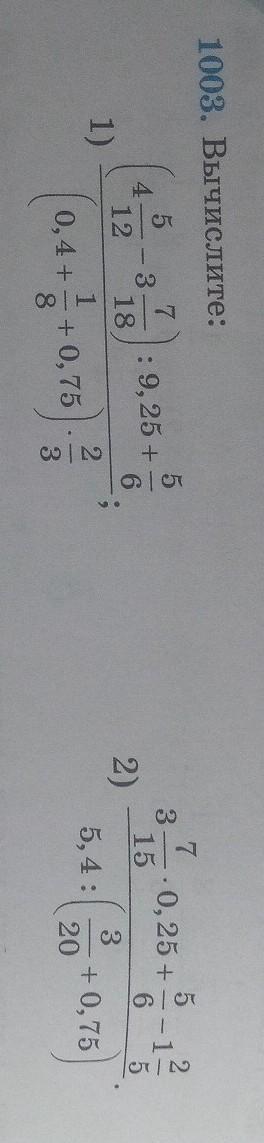 1003. Вычислите:
1) \frac{\left(4\frac{5}{12} - 3\frac{7}{18}\right) : 9,25 + \frac{5}{6}}{\left(0,4 + \frac{1}{8} + 0,75\right) \cdot \frac{2}{3}};
2) \frac{3\frac{7}{15} \cdot 0,25 + \frac{5}{6} - 1\frac{2}{5}}{5,4 : \left(\frac{3}{20} + 0,75\right)}.